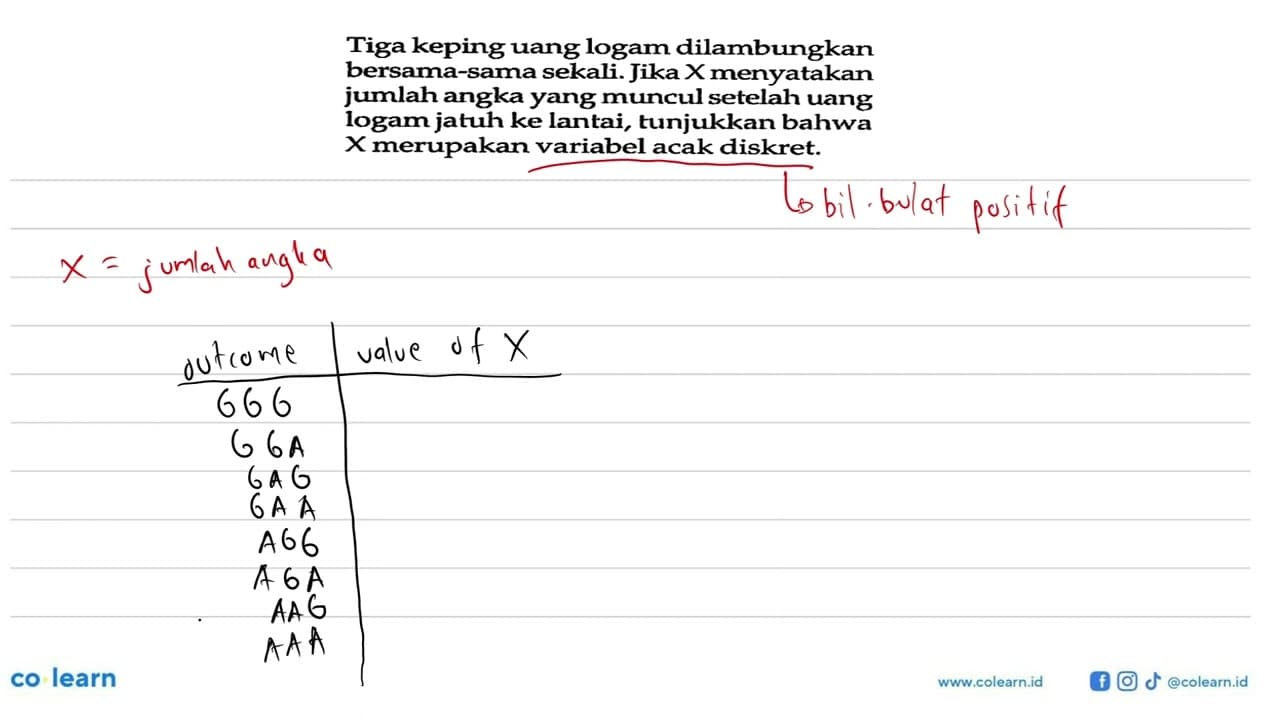 Tiga keping uang logam dilambungkan
bersama-sama sekali. Jika X menyatakan
jumlah angka yang muncul setelah uang
logam jatuh ke lantai, tunjukkan bahwa
X merupakan variabel acak diskret.
↳ bil. bulat positif
X = jumlah angka
outcome | value of X
GGG
GGA
GAG
GAA
AGG
AGA
AAG
AAA
co learn
www.colearn.id @colearn.id